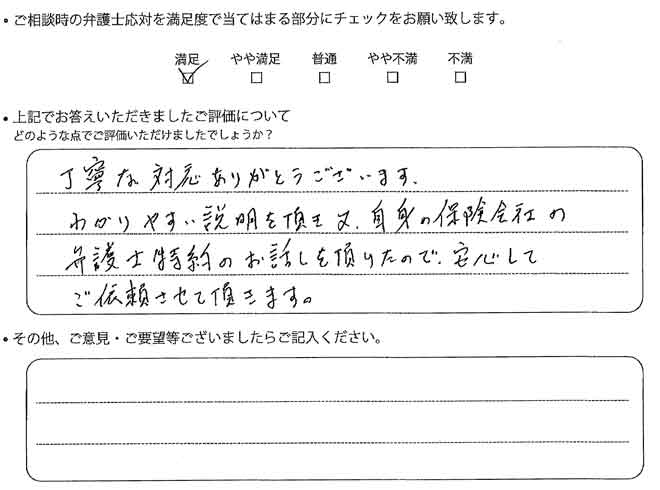 ・ご相談時の弁護士応対を満足度で当てはまる部分にチェックをお願い致します。
満足 やや満足 普通 やや不満 不満
・上記でお答えいただきましたご評価について
どのような点でご評価いただけましたでしょうか？
丁寧な対応ありがとうございます。
わかりやすい説明を頂き又、自身の保険会社の
弁護士特約のお話しを頂けたので、安心して
ご依頼させて頂きます。
・その他、ご意見・ご要望等ございましたらご記入ください。